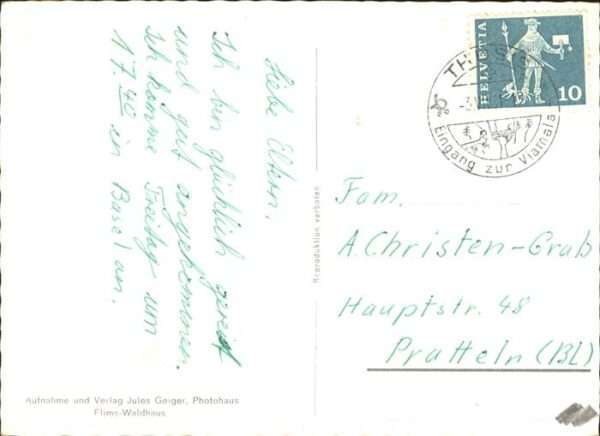 Liebe Eltern.
Ich bin glücklich gereist
und gut angekommen.
Ich komme Freitag um
17.40 in Basel an.
Aufnahme und Verlag Jules Geiger, Photohaus
Flims-Waldhaus
Reproduktion verboten
HELVETIA
10
TH
Eingang zur Viamala
Fam.
A. Christen-Graß
Hauptstr. 48
Pratteln (BL)